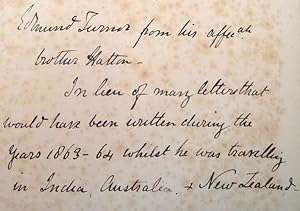 Edmund Turnor from his affecate.
brother Hatton -
In lieu of many letters that
would have been written during the
Years 1863-64 whilst he was travelling
in India, Australia, & New Zealand -